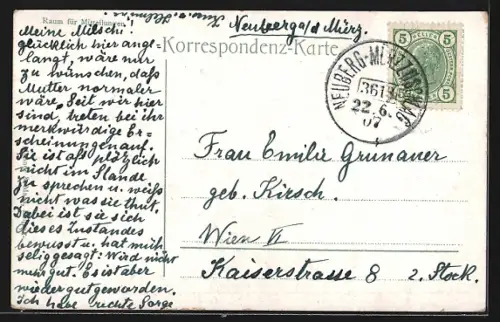 Raum für Mitteilungen.
Neuberg a/d Mürz.
Korrespondenz-Karte
Meine Milschi!
glücklich hier ange-
langt, wäre nur
zu wünschen, daß
Mutter normaler
wäre. Seit wir hier
sind, treten bei ihr
merkwürdige Er-
scheinungen auf.
Sie ist oft plötzlich
nicht im Stande
zu sprechen u. weiß
nicht was sie thut.
Dabei ist sie sich
dieses Zustandes
bewusst u. hat mich
selig gesagt: Wird nicht
mehr gut. Es ist aber
wieder gut geworden.
Ich habe rechte Sorge
NEUBERG-MÜRZZUSCHLAG
361
22.6.
07
5 HELLER 5
5 5
Frau Emilie Grunauer
geb. Kirsch.
Wien VI
Kaiserstrasse 8 2. Stock.